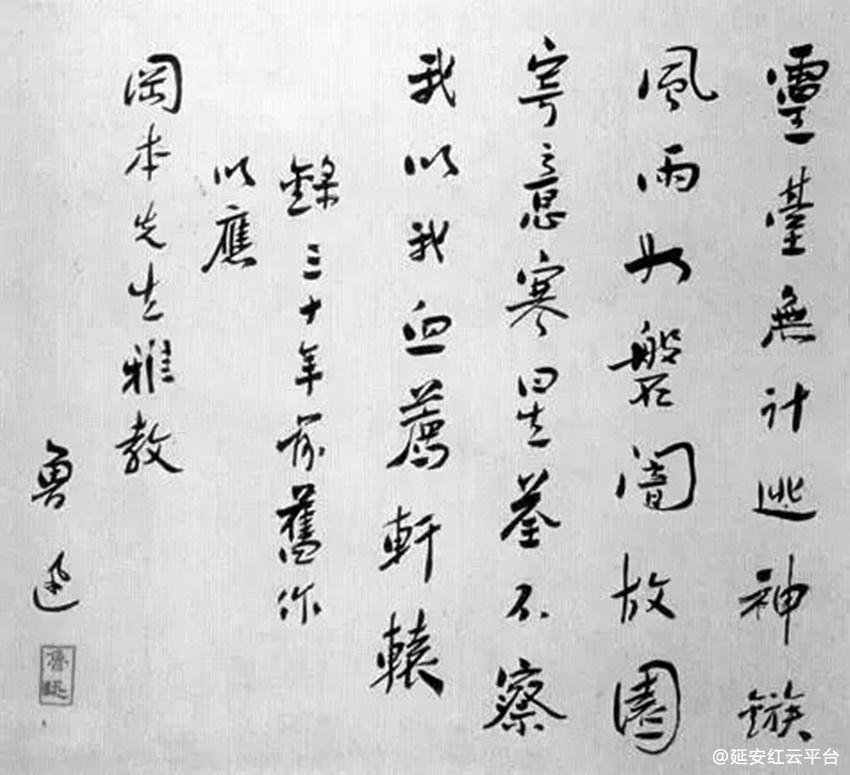 靈臺無計逃神鏃
風雨如磐闇故園
寄意寒星荃不察
我以我血薦軒轅
錄三十年前舊作
以應
岡本先生雅教
魯迅
魯迅
@延安红云平台